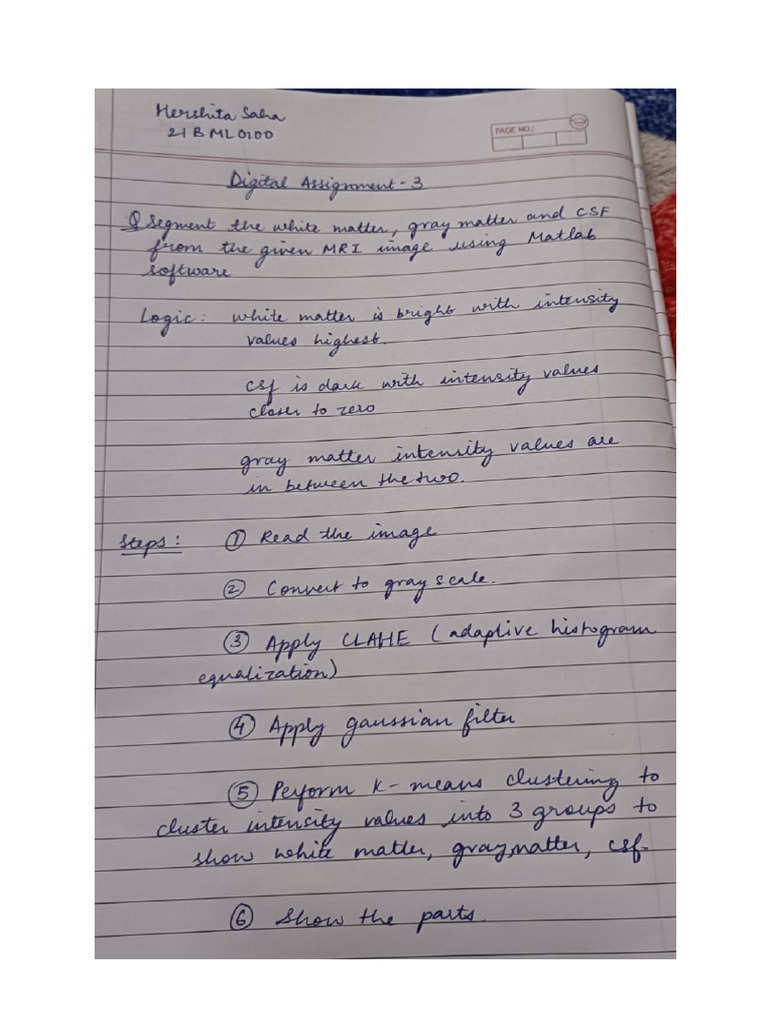 Hershita Saha
21BML0100
PAGE NO.:
Digital Assignment - 3
Q Segment the white matter, gray matter and CSF
from the given MRI image using Matlab
software
Logic: white matter is bright with intensity
values highest.
csf is dark with intensity values
closer to zero
gray matter intensity values are
in between the two.
Steps: ① Read the image
② Convert to gray scale.
③ Apply CLAHE (adaptive histogram
equalization)
④ Apply gaussian filter
⑤ Perform k-means clustering to
cluster intensity values into 3 groups to
show white matter, gray matter, csf.
⑥ Show the parts.